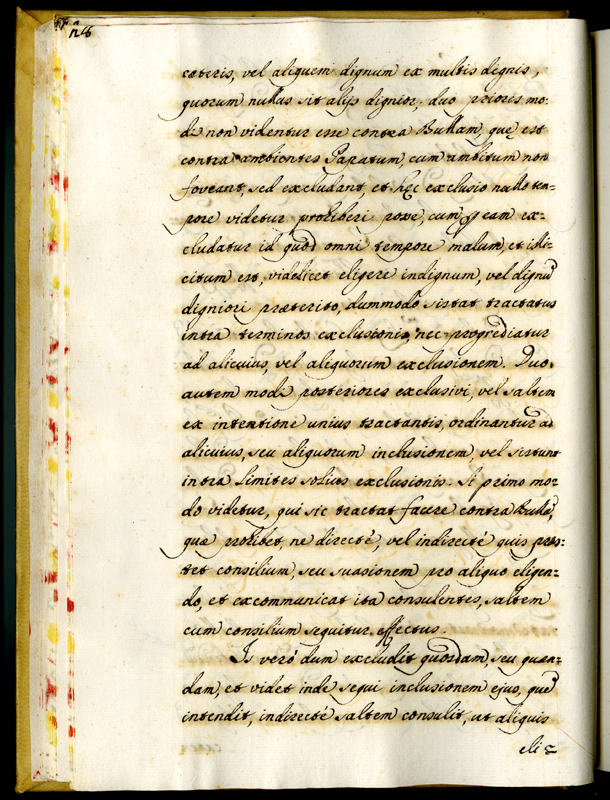 128
cæteris, vel aliquem dignum ex multis dignis,
quorum nullus sit alijs dignior, duo priores mo-
di non videntur esse contra Bullam, quę est
contra ambientes Papatum, cum ambitum non
foveant, sed excludant et hęc exclusio nullo tem=
pore videtur prohiberi posse, cum per eam ex=
cludatur id quod omni tempore malum, et illi=
citum est, videlicet eligere indignum, vel dignũ
digniori præterito, dummodo sistat tractatus
intra terminos exclusionis, nec progrediatur
ad alicuius, vel aliquorum exclusionem. Duo
autem modi posteriores exclusivi, vel saltem
ex intentione unius tractantis, ordinantur ad
alicuius, seu aliquorum inclusionem, vel sistunt
intra limites solius exclusionis. Si primo mo=
do videtur, qui sic tractat facere contra Bullã,
quæ prohibet, ne directè, vel indirectè quis præs=
tet consilium, seu suasionem pro aliquo eligen=
do, et excommunicat ita consulentes, saltem
cum consilium sequitur effectus.
Is verò dum excludit quosdam, seu quen=
dam, et videt inde sequi inclusionem ejus, quẽ
intendit, indirectè saltem consulit, ut aliquis
eli=